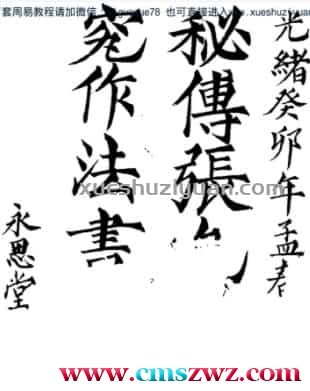 套周易教程请加微信
xue78 也可直接进入
.xueshuziyuan
光緒癸卯年孟春
秘傳張
究作法書
永思堂
xueshuziyuan.com
www.cmszwz.com